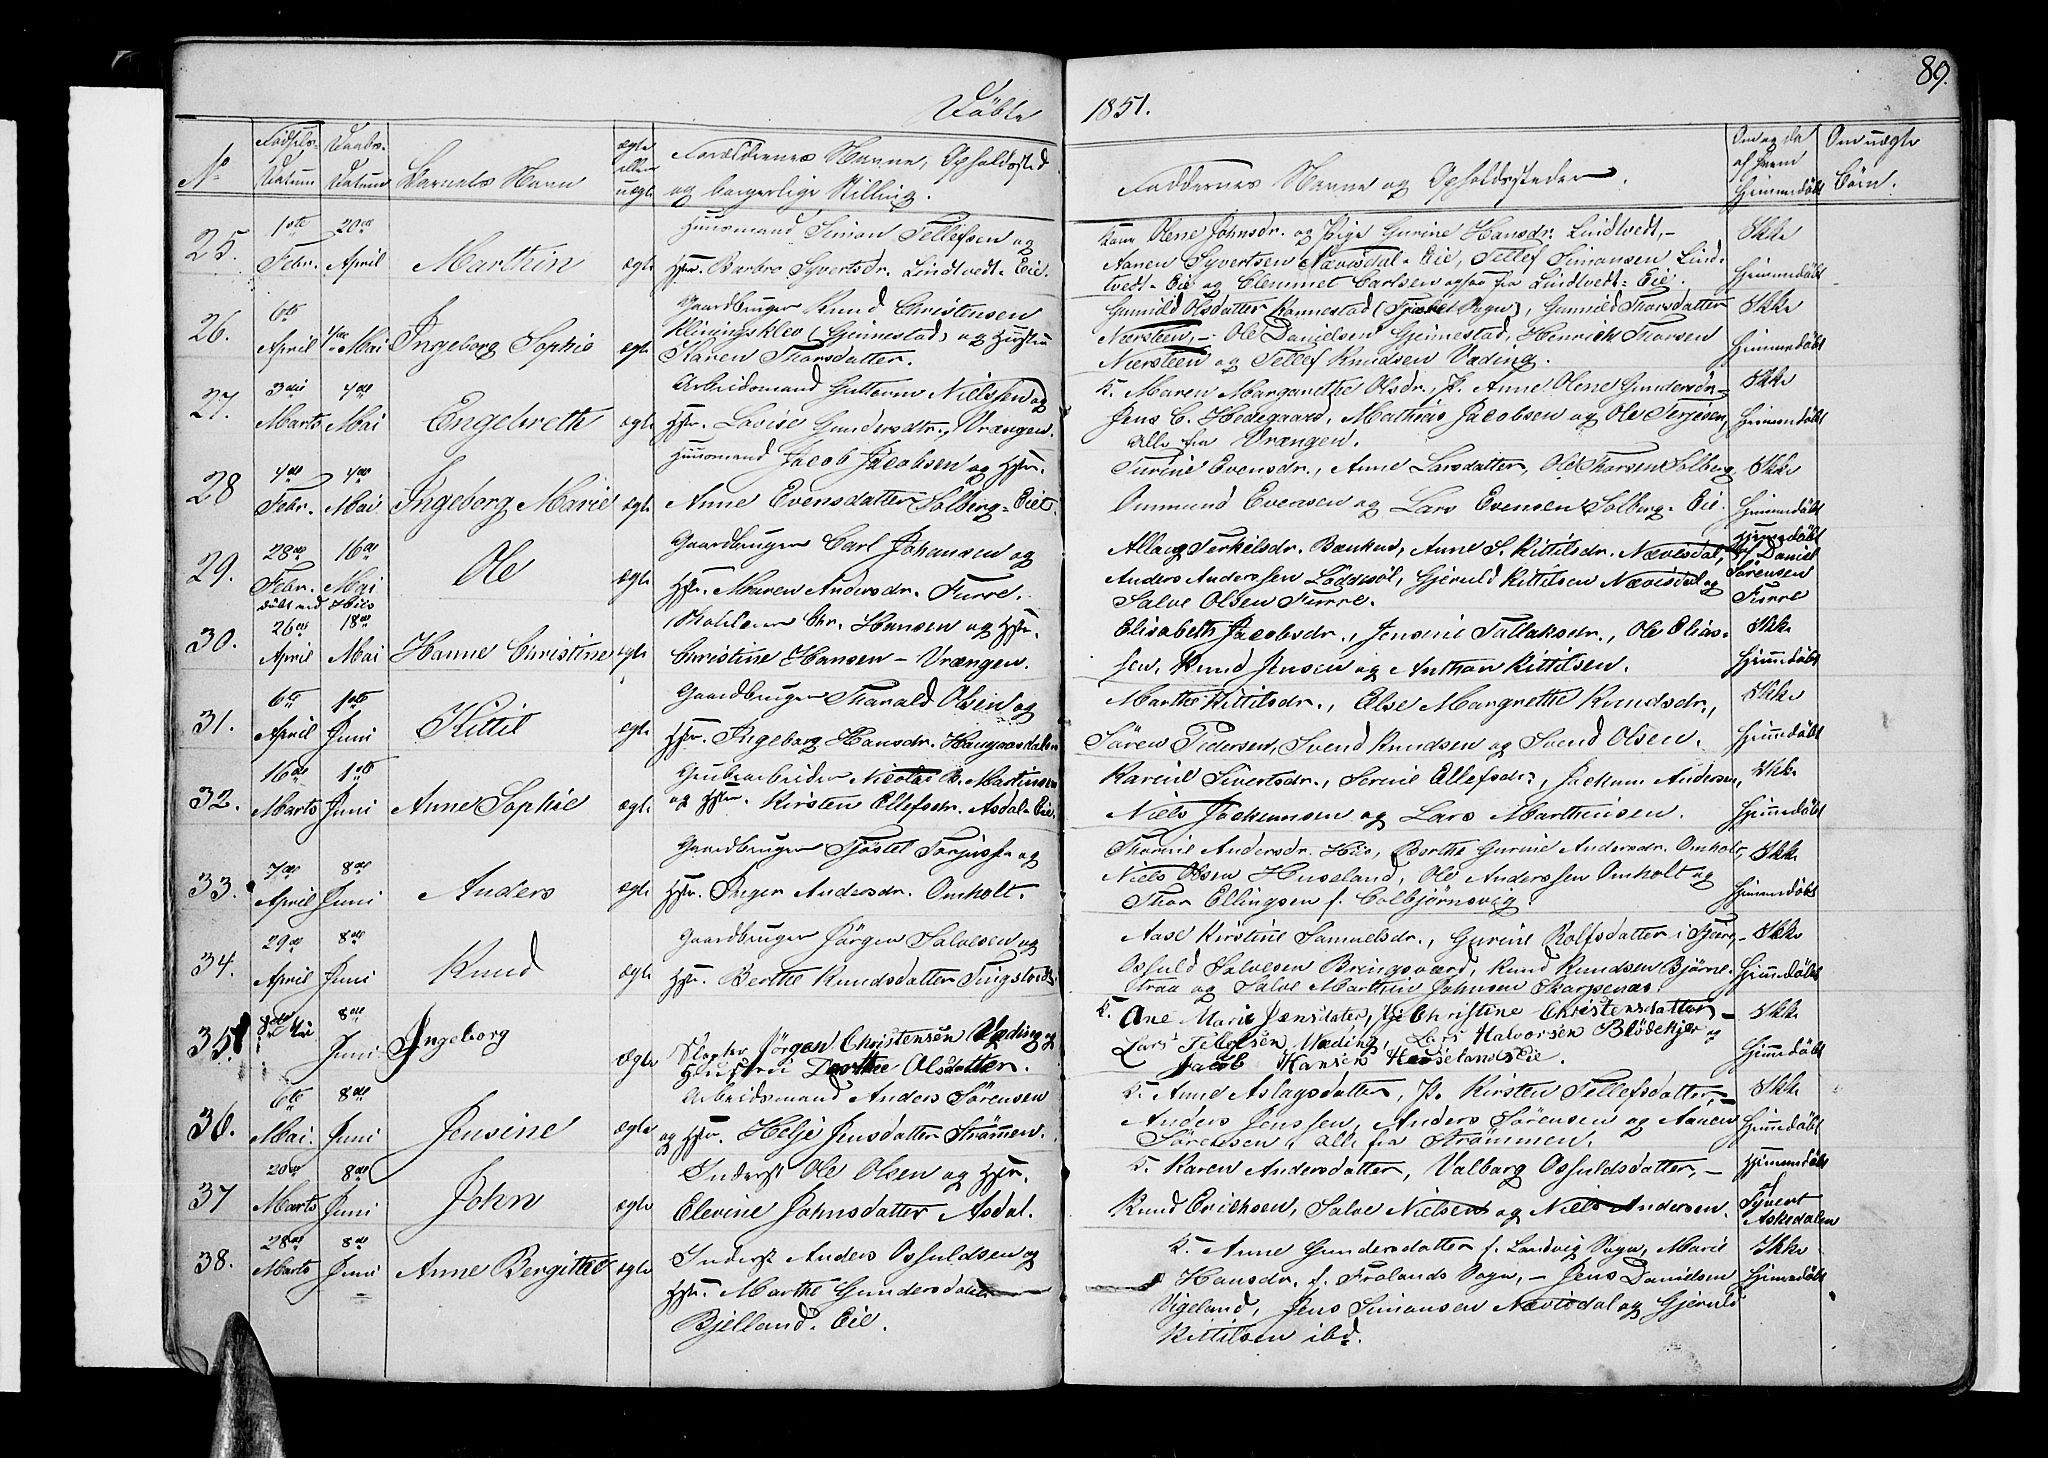 89.
Døbte 1851.
No
Fødsels-Datum
Daabs-Datum
Barnets Navn
ægte eller uægte
Forældrenes Navne, Opholdssted og borgerlige Stilling.
Faddernes Navne og Opholdssteder.
Om og da af hvem Hjemmedøbt
Om uægte Börn.
25. 1ste Febr. 20de April Marthin ægte
Huusmand Simon Tellefsen og
Hstr. Barbro Syvertsdr. Lindtvedt-Eie.
Kone Olene Johnsdr. og Pige Gurine Hansdr. Lindtvedt, -
Aanen Syvertsen Nævisdal-Eie, Tellef Simonsen Lind-
tvedt-Eie og Clemmet Carlsen ogsaa fra Lindtvedt-Eie.
Ikke Hjemmedøbt
26. 6te April 1ste Mai Ingeborg Sophie ægte
Gaardbruger Knud Christensen
Klöningsklev (Gjennestad) og Hustru
Karen Thorsdatter.
Gunnild Olsdatter Rannestad (Fjære Sogn), Gunnild Thorsdatter
Nærsteen, - Ole Danielsen Gjennestad, Henrich Thorsen
Niersteen og Tellef Knudsen Væding.
Ikke Hjemmedøbt
27. 3die Marts 4de Mai Engebreth ægte
Arbeidsmand Guttorm Nielssen og
Hstr. Lovise Gundersdtr., Vrængen.
K. Maren Margarethe Olsdr., P. Anne Olene Gundersdr. -
Jens C. Hedegaard, Mathias Jacobsen og Ole Terjesen,
alle fra Vrængen.
Ikke Hjemmedøbt
28 4de Febr. 4de Mai Ingeborg Marie ægte
Huusmand Jacob Jacobsen og Hstr.
Anne Evensdatter Solberg-Eie.
Turine Evensdr., Anne Larsdatter, Ole Thorsen Solberg,
Ommund Evensen og Lars Evensen Solberg-Eie.
Ikke Hjemmedøbt
29. 28de Febr. 16de Mai Ole ægte
Gaardbruger Carl Johansen og
Hstr. Maren Andersdr. Furre.
Allaug Terkelsdr. Bænkud, Anne S. Kittilsdr. Nævisdal,
Anders Anderssen Löddesöl, Gjeruld Kittilsen Nævisdal og
Salve Olsen Furre.
Hjemmedøbt af Daniel Sörensen Furre
døbt ved Hiis
30. 26de April 18de Mai Hanne Christine ægte
Chr. Hansen og Hstr.
Christine Hansen - Vrængen.
Elisabeth Jacobsdr., Jensine Tallaksdr., Ole Elias-
sen, Knud Jensen og Anthon Kittilsen.
Ikke Hjemmedøbt
31. 6te April 1ste Juni Kittil ægte
Gaardbruger Tharald Olsen og
Hstr. Ingeborg Hansdr. Haugaasdalen
Marthe Kittilsdr., Else Margrethe Knudsdr.,
Sören Pedersen, Svend Knudsen og Svend Olsen.
Ikke Hjemmedøbt
32. 16de Marts 1ste Juni Anne Sophie ægte
Grubearbeider Nicolai B. Martinsen
og Hstr. Kirsten Ellefsdr. Asdal-Eie.
Karine Sivertsdr., Serine Ellefsdr., Jockum Andersen,
Niels Jockumsen og Lars Marthinsen.
Ikke Hjemmedøbt
33. 7de April 8de Juni Anders ægte
Gaardbruger Tjöstel Torjusf. og
Hstr. Inger Andersdr. Omholt.
Thorine Andersdr. Hiis, Berthe Gurine Andersdr. Omholt,
Niels Olsen Huseland, Ole Anderssen Omholt og
Thor Ellingsen f. Colbjørnsvig.
Ikke Hjemmedøbt
34. 29de April 8de Juni Knud ægte
Gaardbruger Jörgen Salvesen og
Hstr. Berthe Knudsdatter Tingstvedt.
Aase Kirstine Samuelsdr., Gurine Rolfsdatter i Fjære, -
Osfuld Salvesen Bringsværd, Knud Knudsen Björne-
traa og Salve Marthin Johnsen Skarpenæs.
Ikke Hjemmedøbt
35. 8de Mai 8de Juni Ingeborg Ægte
Jörgen Christensen Væding og
Hustru Dorthe Olsdatter.
K. Ane Marie Jensdater, Pige Christine Christensdatter -
Lars Tellefsen Væding, Lars Halvorsen Blödekjær og
Jacob Hansen Haselandseie.
Ikke Hjemmedøbt
36. 6te Mai. 8de Juni Jensine ægte
Arbeidsmand Anders Sörensen
og Hstr. Helje Jensdatter Strömmen.
K. Anne Aslagsdatter, P. Kirsten Tellefsdatter, -
Anders Jenssen, Anders Sörensen og Aanen
Sörensen, alle fra Strömmen.
Ikke Hjemmedøbt
37 20de Marts 8de Juni John ægte
Inderst Ole Olsen og Hstr.
Elevine Johnsdatter Asdal.
K. Karen Andersdatter, Valborg Osfuldsdatter, -
Knud Erichsen, Salve Nielsen og Niels Andersen.
Hjemmedøbt af Syvert Askedalen
38. 28de Marts 8de Juni Anne Bergitte ægte
Inderst Anders Osfuldsen og
Hstr. Marthe Gundersdatter
Bjelland-Eie.
K. Anne Gundersdatter f. Landvig Sogn, Marie
Hansdr. f. Frolands Sogn, - Jens Danielsen
Vigeland, Jens Simonsen Nævisdal og Gjeruld
Kittilsen ibd.
Ikke Hjemmedøbt